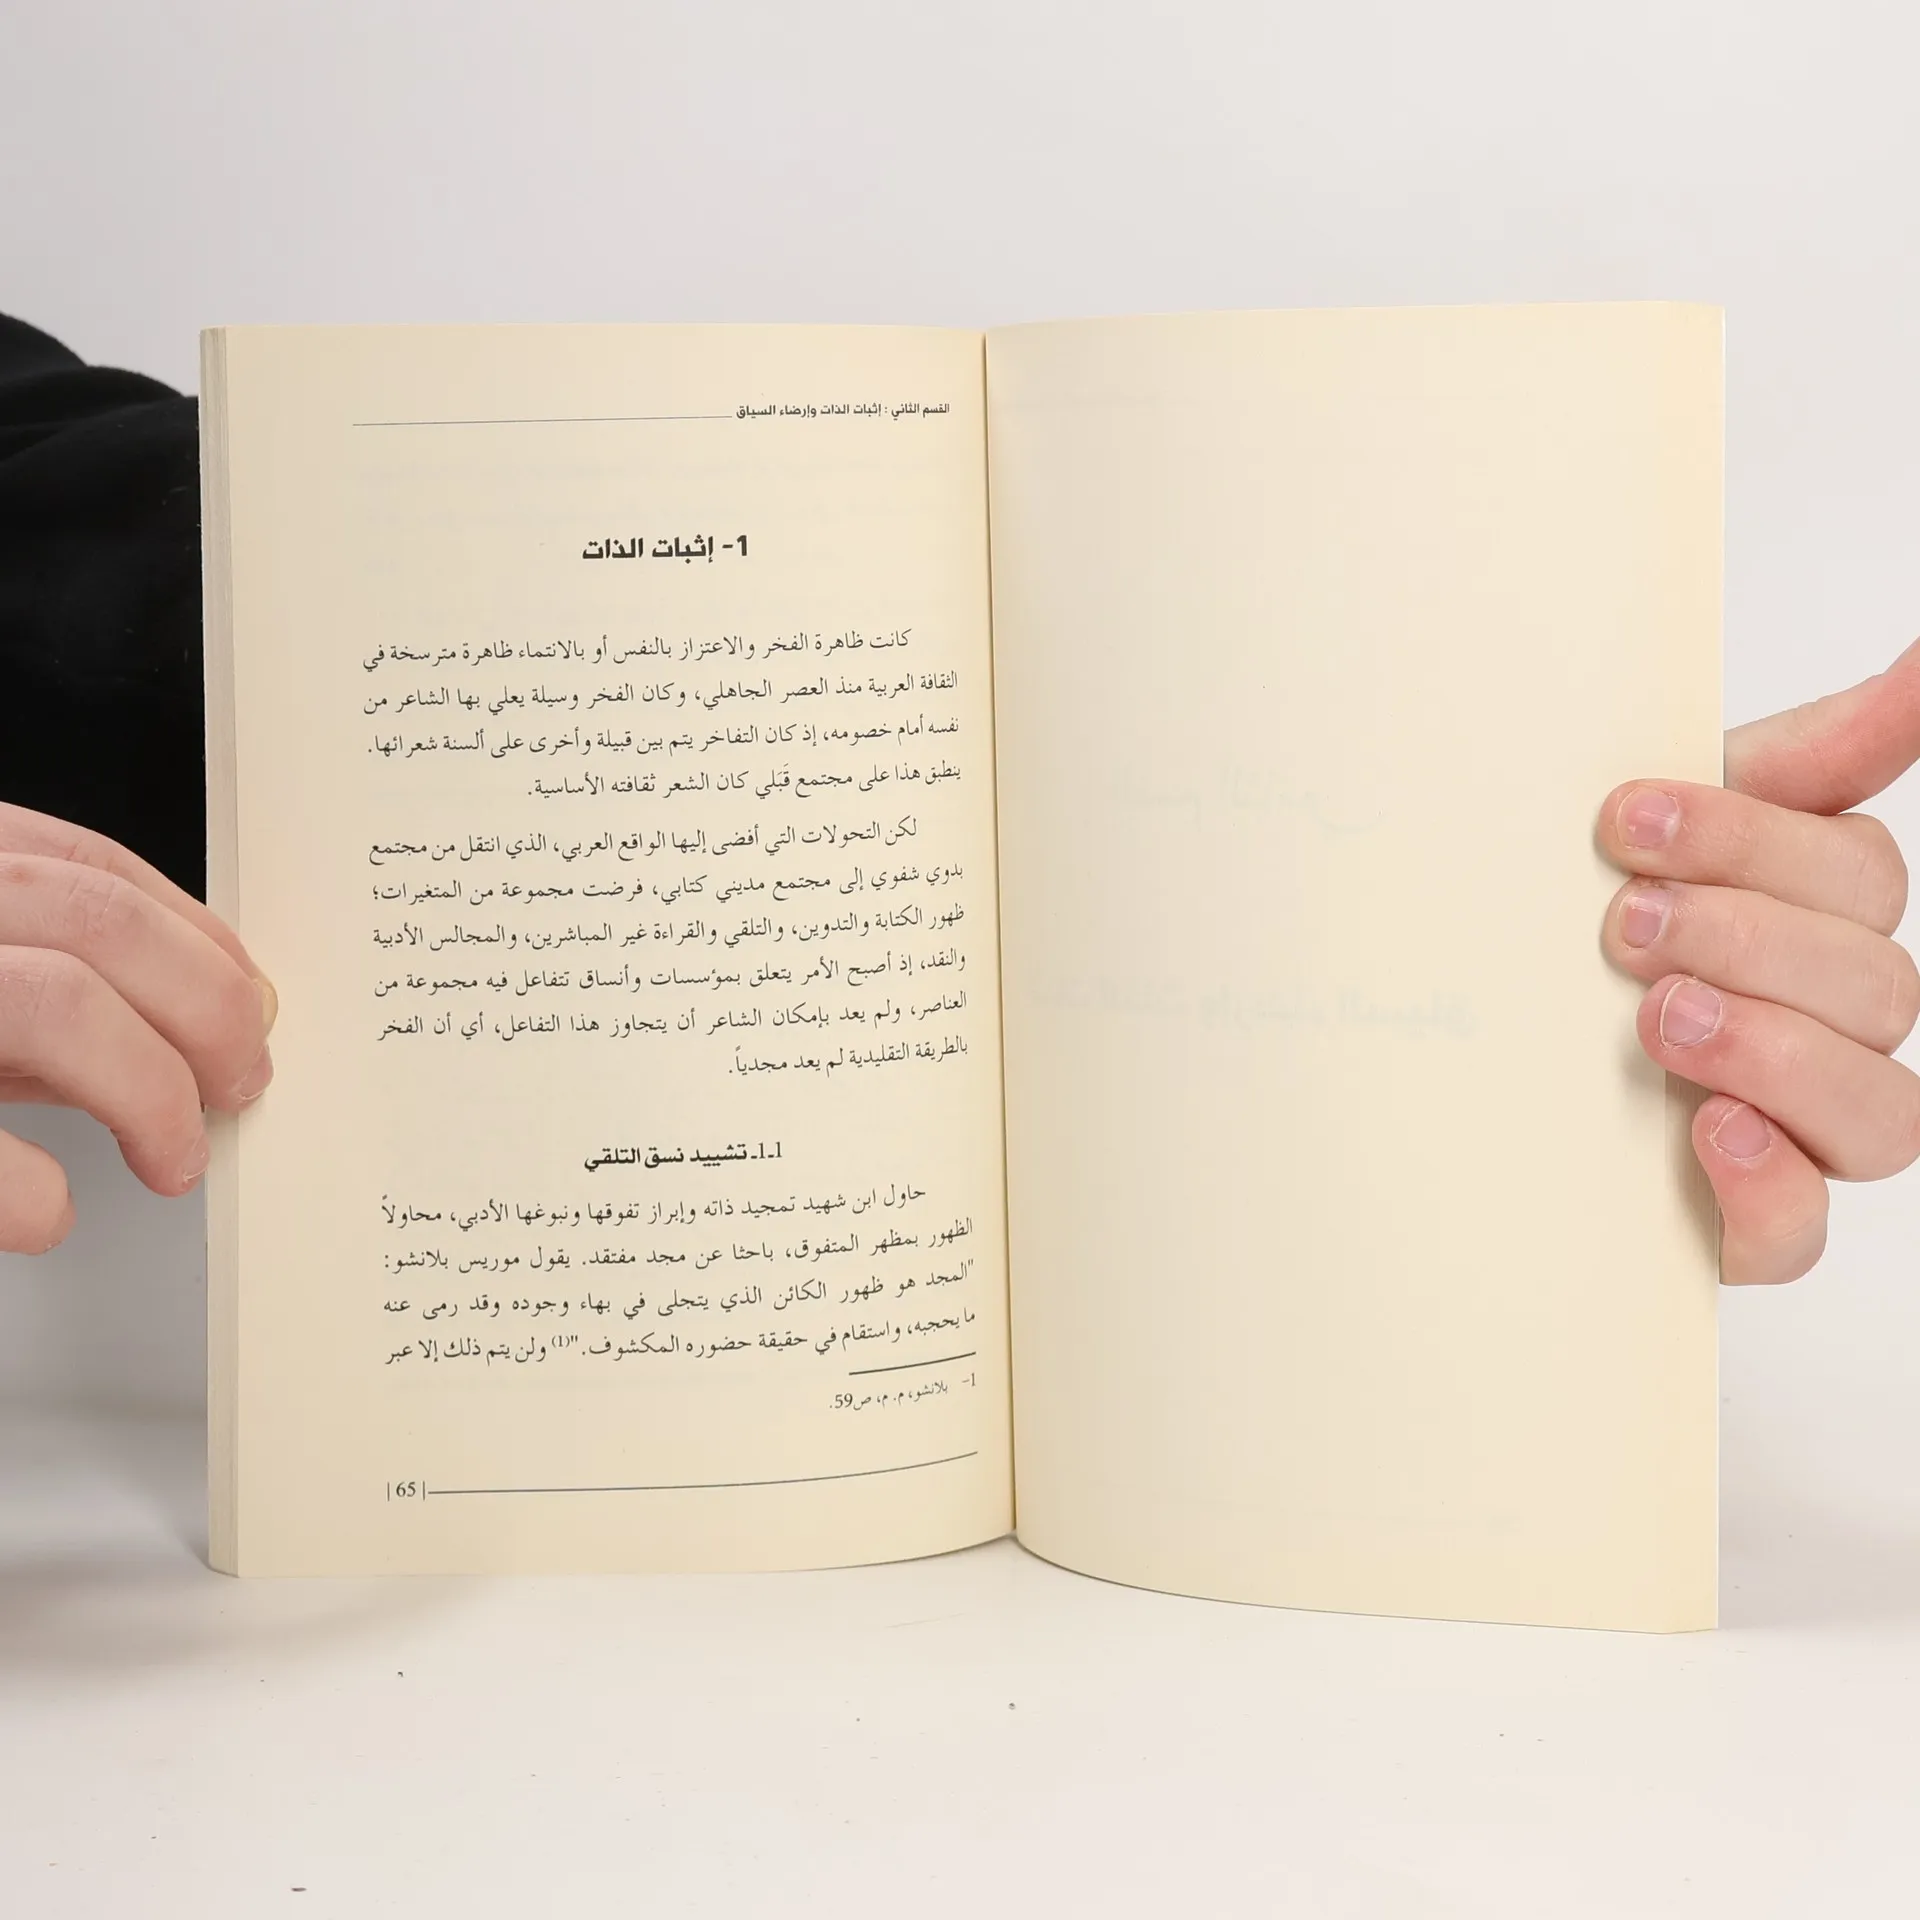 القسم الثاني : إثبات الذات وإرضاء السياق
1- إثبات الذات
كانت ظاهرة الفخر والاعتزاز بالنفس أو بالانتماء ظاهرة مترسخة في
الثقافة العربية منذ العصر الجاهلي، وكان الفخر وسيلة يعلي بها الشاعر من
نفسه أمام خصومه، إذ كان التفاخر يتم بين قبيلة وأخرى على ألسنة شعرائها.
ينطبق هذا على مجتمع قَبَلي كان الشعر ثقافته الأساسية.
لكن التحولات التي أفضى إليها الواقع العربي، الذي انتقل من مجتمع
بدوي شفوي إلى مجتمع مديني كتابي، فرضت مجموعة من المتغيرات؛
ظهور الكتابة والتدوين، والتلقي والقراءة غير المباشرين، والمجالس الأدبية
والنقد، إذ أصبح الأمر يتعلق بمؤسسات وأنساق تتفاعل فيه مجموعة من
العناصر، ولم يعد بإمكان الشاعر أن يتجاوز هذا التفاعل، أي أن الفخر
بالطريقة التقليدية لم يعد مجدياً.
1ـ1ـ تشييد نسق التلقي
حاول ابن شهيد تمجيد ذاته وإبراز تفوقها ونبوغها الأدبي، محاولاً
الظهور بمظهر المتفوق، باحثا عن مجد مفتقد. يقول موريس بلانشو:
"المجد هو ظهور الكائن الذي يتجلى في بهاء وجوده وقد رمى عنه
ما يحجبه، واستقام في حقيقة حضوره المكشوف."(1) ولن يتم ذلك إلا عبر
1- بلانشو، م. م، ص59.
| 65 |